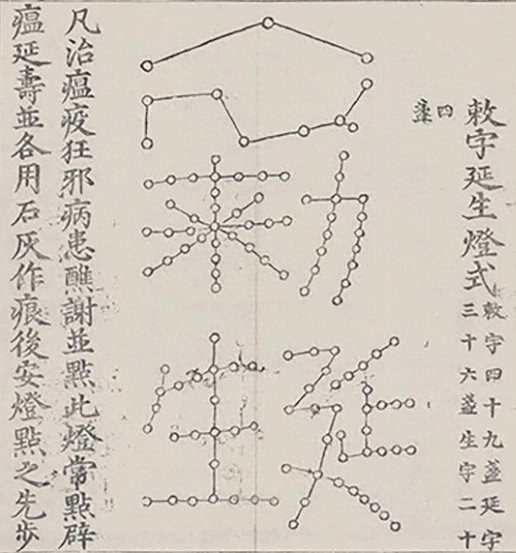 敕字延生燈式
敕字四十九盞延字
三十六盞生字二十
四
盞
凡治瘟疫狂邪病患醮謝並點此燈常點辟
瘟延壽並各用石灰作痕後安燈點之先步